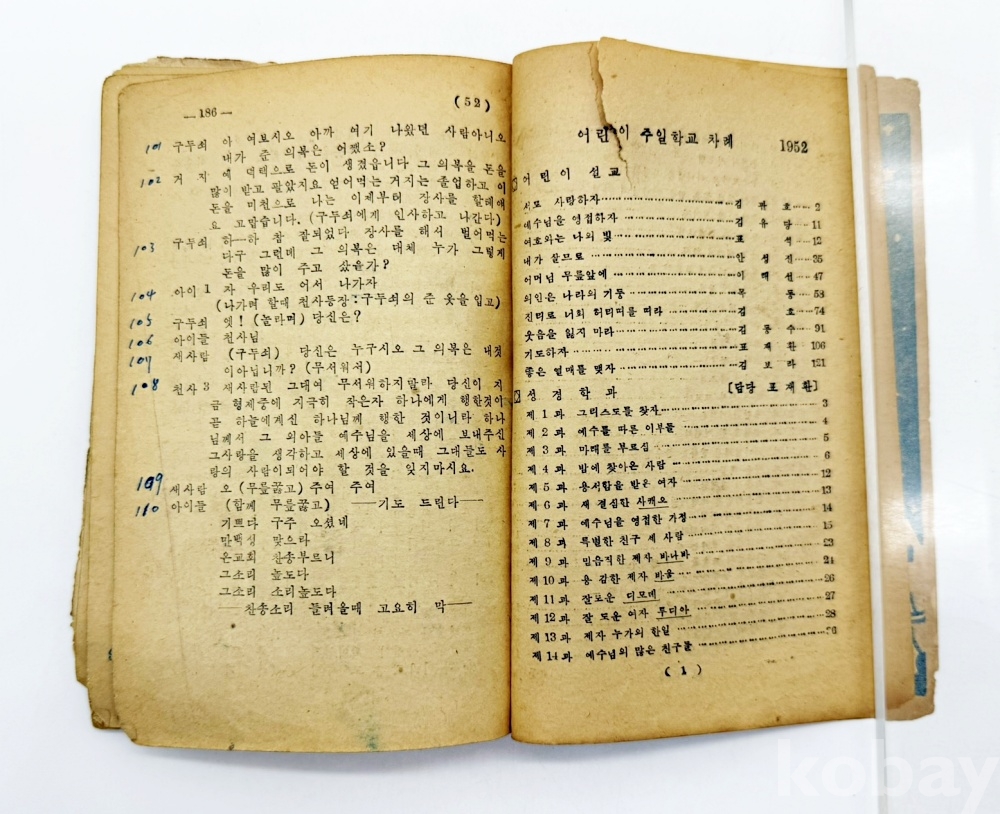 — 186 —
(52)
101 구두쇠 아 여보시오 아까 여기 나왔던 사람아니오
내가 준 의복은 어쨌소?
102 거 지 예 덕택으로 돈이 생겼읍니다 그 의복을 돈을
많이 받고 팔았지요 얻어먹는 거지는 졸업하고 이
돈을 미천으로 나는 이제부터 장사를 할테애
요 고맙습니다. (구두쇠에게 인사하고 나간다)
103 구두쇠 하—하 참 잘되었다 장사를 해서 벌어먹는
다구 그런데 그 의복은 대체 누가 그렇게
돈을 많이 주고 샀을가?
104 아이 1 자 우리도 어서 나가자
(나가려 할때 천사등장 : 구두쇠의 준 옷을입고)
105 구두쇠 엣! (놀라며) 당신은?
106 아이들 천사님
107 새사람 (구두쇠) 당신은 누구시오 그 의복은 내것
이아닙니까? (무서워서)
108 천사 3 새사람된 그대여 무서워하지말라 당신이 지
금 형제중에 지극히 작은자 하나에게 행한것이
곧 하늘에계신 하나님께 행한 것이니라 하나
님께서 그 외아들 예수님을 세상에 보내주신
그사랑을 생각하고 세상에 있을때 그대들도 사
랑의 사람이되어야 할 것을 잊지마시요.
109 새사람 오 (무릎꿇고) 주여 주여
110 아이들 (함께 무릎꿇고) ——기도 드린다——
기쁘다 구주 오셨네
만백성 맞으라
온교회 찬송부르니
그소리 높도다
그소리 소리높도다
——찬송소리 들려올때 고요히 막——
어린이 주일학교 차례 1952
어린이 설교
서로 사랑하자 김 관 호 2
예수님을 영접하자 김 유 당 11
여호와는 나의 빛 표 석 12
내가 살므로 안 성 진 35
어머님 무릎앞에 이 태 선 47
의인은 나라의 기둥 목 동 58
진리로 너희 허리띠를 띠라 김 호 74
웃음을 잃지 마라 김 동 수 91
기도하자 표 재 환 106
좋은 열매를 맺자 김 보 라 121
성 경 학 과 [담당 표 재 환]
제 1 과 그리스도를 찾자 3
제 2 과 예수를 따른 이부들 4
제 3 과 마태를 부르심 5
제 4 과 밤에 찾아온 사람 6
제 5 과 용서함을 받은 여자 12
제 6 과 새 결심한 사깨오 13
제 7 과 예수님을 영접한 가정 14
제 8 과 특별한 친구 세 사람 15
제 9 과 믿음직한 제자 바나바 23
제 10 과 용 감한 제자 바울 24
제 11 과 잘로운 디모데 26
제 12 과 잘 도운 여자 루디아 27
제 13 과 제자 누가의 한일 28
제 14 과 예수님의 많은 친구들 36
( 1 )
kobay